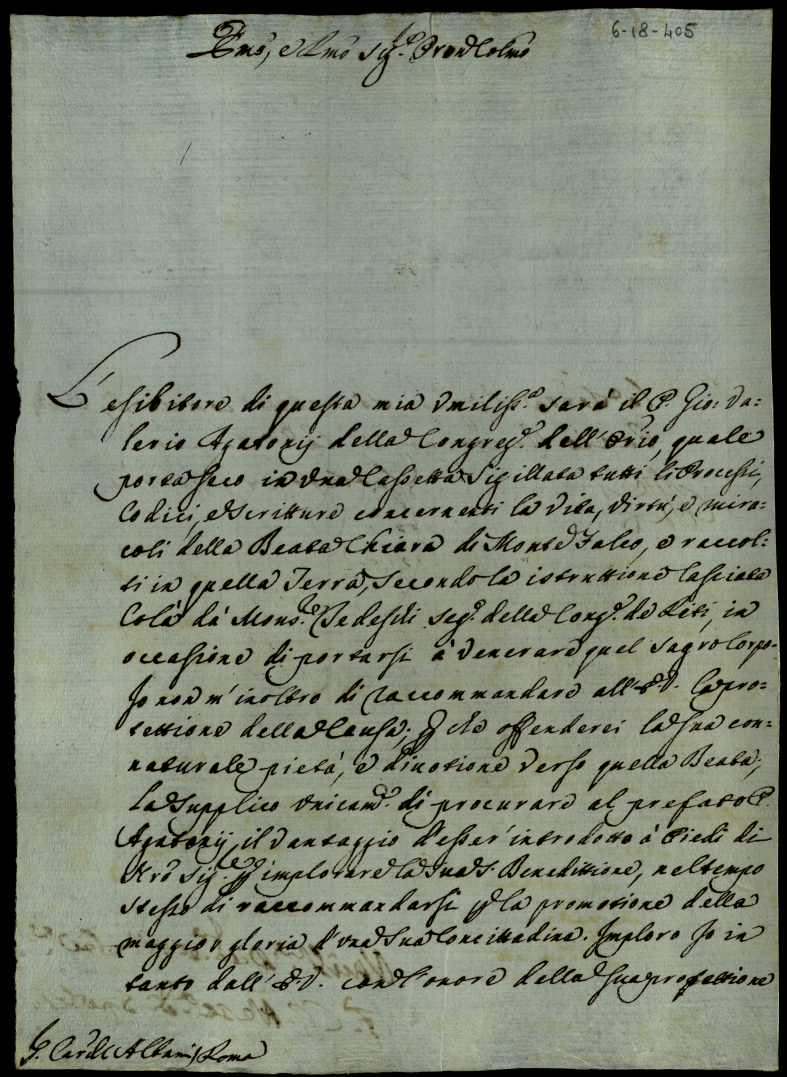 6-18-405
Emo, e Rmo Sig.r Pron Colmo
L'esibitore di questa mia Vmiliss.a sarà il P. Gio: Va=
lerio Agatonij della Congreg.e dell'Orio, quale
porta seco in una Cassetta Sigillata tutti li Processi,
Codici, e Scritture concernenti la Vita, Virtù, e mira=
coli della Beata Chiara di Monte Falco, e raccol=
ti in quella Terra, secondo la istruttione lasciata
Colà da Mons.re Tedeschi seg.rio della Cong.e de Riti, in
occasione di portarsi à Venerare quel Sagro Corpo.
Jo non m'inoltro di raccommandare all'E.V. la pro=
tettione della Causa, p che offenderei la sua con=
naturale pietà, e divotione verso quella Beata;
La Supplico unicam.e di procurare al prefato P.
Agatonij, il vantaggio d'esser' introdotto à Piedi di
Nro Sig.re p implorare la Sua S. Benedittione, nel tempo
stesso di raccommandarsi p la promotione della
maggior gloria d'una Sua Concittadina. Imploro Jo in
tanto dall'E.V. con l'onore della sua protettione
S. Card.le Albani, Roma